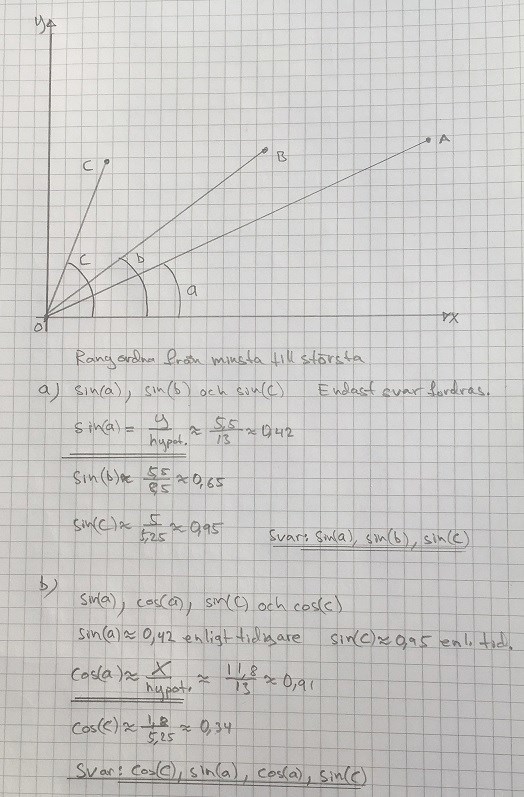 y
C
B
A
c
b
a
0
x
Rangordna från minsta till största
a) sin(a), sin(b) och sin(c) Endast svar fordras.
sin(a) = y/hypot. ≈ 5,5/13 ≈ 0,42
sin(b) ≈ 5,5/8,5 ≈ 0,65
sin(c) ≈ 5/5,25 ≈ 0,95 Svar: sin(a), sin(b), sin(c)
b)
sin(a), cos(a), sin(c) och cos(c)
sin(a) ≈ 0,42 enligt tidigare sin(c) ≈ 0,95 enl. tid.
cos(a) ≈ x/hypot. ≈ 11,8/13 ≈ 0,91
cos(c) ≈ 1,8/5,25 ≈ 0,34
Svar: cos(c), sin(a), cos(a), sin(c)